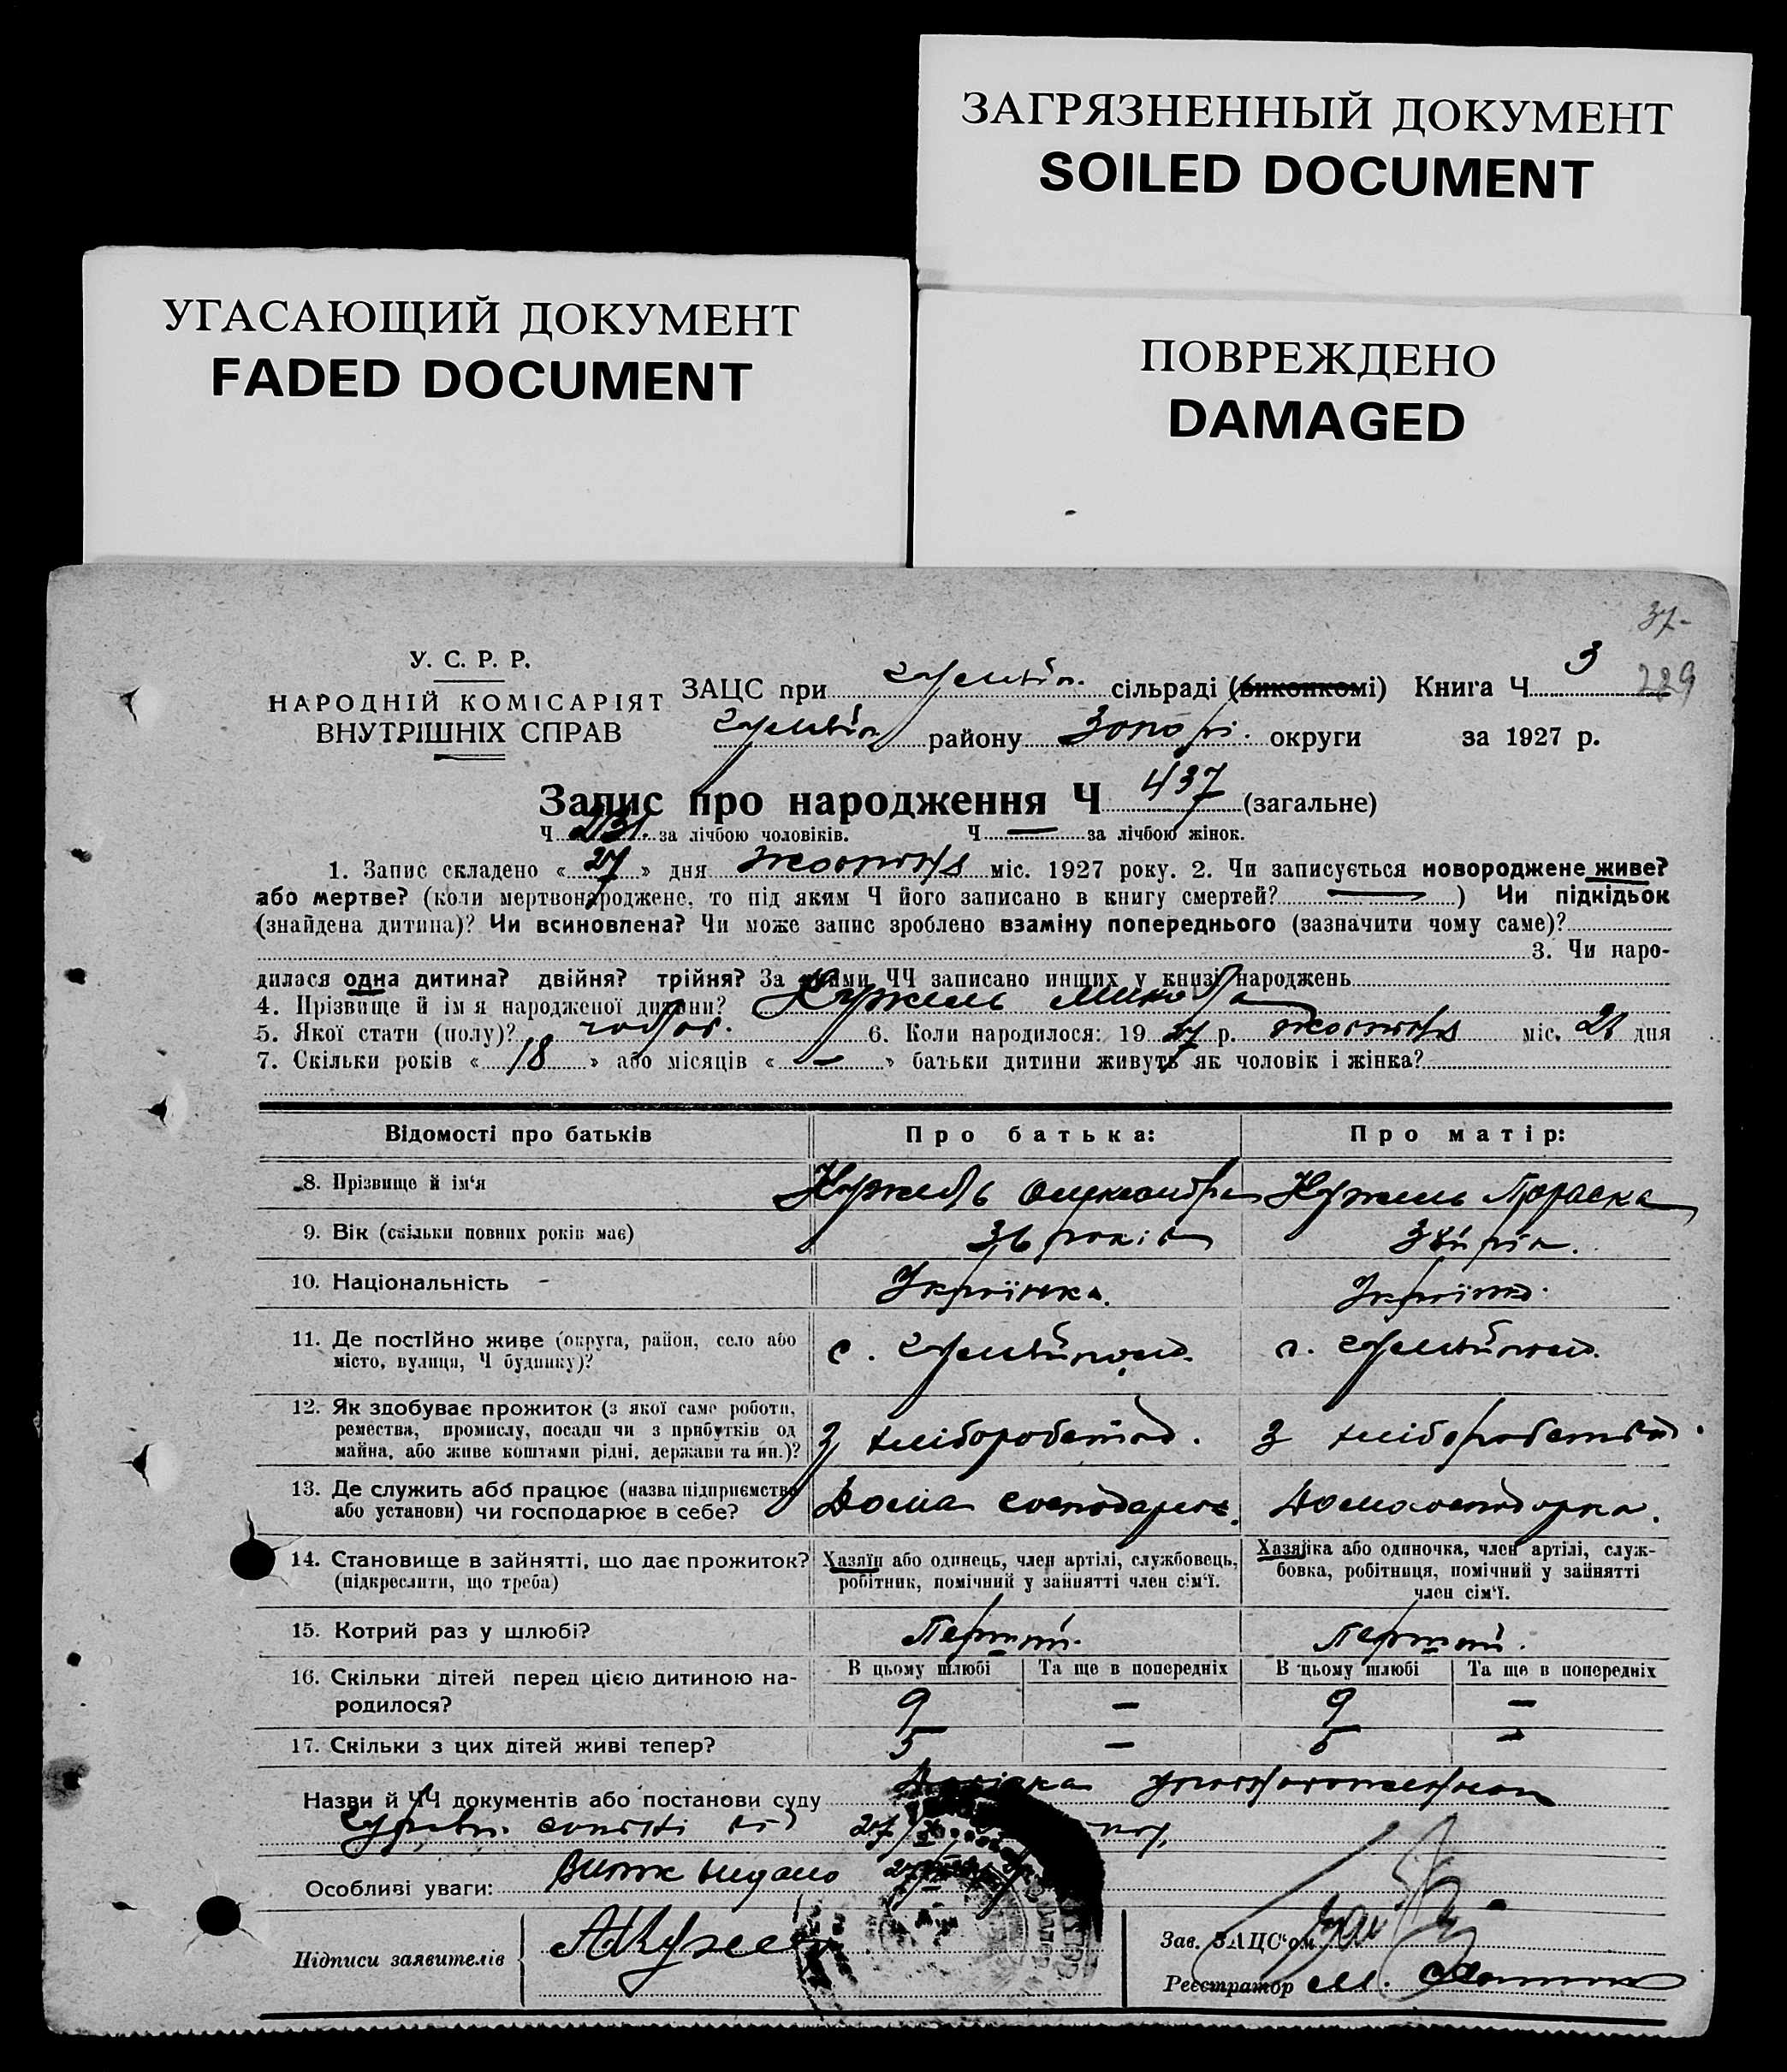 ЗАГРЯЗНЕННЫЙ ДОКУМЕНТ
SOILED DOCUMENT
УГАСАЮЩИЙ ДОКУМЕНТ
FADED DOCUMENT
ПОВРЕЖДЕНО
DAMAGED
37-
229
У. С. Р. Р.
НАРОДНІЙ КОМІСАРІЯТ
ВНУТРІШНІХ СПРАВ
ЗАЦС при сільраді (виконкомі) Книга Ч 3
району округи за 1927 р.
Запис про народження Ч 437 (загальне)
Ч за лічбою чоловіків. Ч — за лічбою жінок.
1. Запис складено « 27 » дня жовтня міс. 1927 року. 2. Чи записується новороджене живе?
або мертве? (коли мертвонароджене, то під яким Ч його записано в книгу смертей? — ) Чи підкідьок
(знайдена дитина)? Чи всиновлена? Чи може запис зроблено взаміну попереднього (зазначити чому саме)?
3. Чи наро-
дилася одна дитина? двійня? трійня? За якими ЧЧ записано инших у книзі народжень
4. Прізвище й ім'я народженої дитини? Кужель Микола
5. Якої стати (полу)? 6. Коли народилося: 19 27 р. жовтня міс. дня
7. Скільки років « 18 » або місяців « — » батьки дитини живуть як чоловік і жінка?
Відомості про батьків
Про батька:
Про матір:
8. Прізвище й ім'я
Кужель Олександр
Кужель Параска
9. Вік (скільки повних років має)
36 років
10. Національність -
Українка.
11. Де постійно живе (округа, район, село або
місто, вулиця, Ч будинку)?
12. Як здобуває прожиток (з якої саме роботи,
ремества, промислу, посади чи з прибутків од
майна, або живе коштами рідні, держави та ин.)?
З хліборобства.
З хліборобства.
13. Де служить або працює (назва підприємства
або установи) чи господарює в себе?
Дома господарює.
Домогосподарка.
14. Становище в зайнятті, що дає прожиток?
(підкреслити, що треба)
Хазяїн або одинець, член артілі, службовець,
робітник, помічний у зайнятті член сім'ї.
Хазяйка або одиночка, член артілі, служ-
бовка, робітниця, помічний у зайнятті
член сім'ї.
15. Котрий раз у шлюбі?
Перший.
Перший.
16. Скільки дітей перед цією дитиною на-
родилося?
В цьому шлюбі
Та ще в попередніх
В цьому шлюбі
Та ще в попередніх
9 — 9 —
17. Скільки з цих дітей живі тепер?
5 — 5 —
Назви й ЧЧ документів або постанови суду
Особливі уваги: Витяг видано
Підписи заявителів
Зав. ЗАЦС'ом
Реєстратор